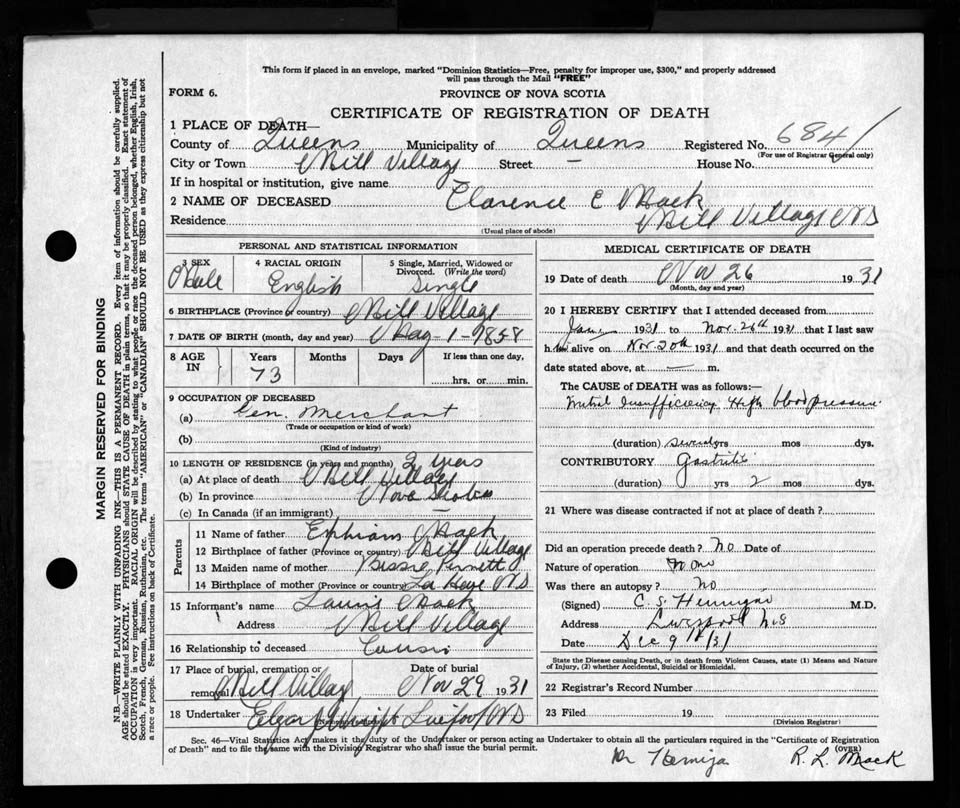 This form if placed in an envelope, marked "Dominion Statistics—Free, penalty for improper use, $300," and properly addressed
will pass through the Mail "FREE"
FORM 6.
PROVINCE OF NOVA SCOTIA
CERTIFICATE OF REGISTRATION OF DEATH
1 PLACE OF DEATH—
County of Queens Municipality of Queens Registered No. 684
(For use of Registrar General only)
City or Town Mill Village Street — House No.
If in hospital or institution, give name
2 NAME OF DECEASED Clarence E Mack
Residence Mill Village NS
(Usual place of abode)
PERSONAL AND STATISTICAL INFORMATION
3 SEX Male
4 RACIAL ORIGIN English
5 Single, Married, Widowed or Divorced. (Write the word) Single
6 BIRTHPLACE (Province or country) Mill Village
7 DATE OF BIRTH (month, day and year) May 1 1858
8 AGE IN Years 73 Months Days If less than one day, hrs. or min.
9 OCCUPATION OF DECEASED
(a) Gen. Merchant
(Trade or occupation or kind of work)
(b)
(Kind of industry)
10 LENGTH OF RESIDENCE (in years and months) years
(a) At place of death Mill Village
(b) In province Nova Scotia
(c) In Canada (if an immigrant)
Parents
11 Name of father Ephriam Mack
12 Birthplace of father (Province or country) Mill Village
13 Maiden name of mother
14 Birthplace of mother (Province or country) La Have NS
15 Informant's name Mack
Address Mill Village
16 Relationship to deceased Cousin
17 Place of burial, cremation or removal Mill Village
Date of burial Nov 29 1931
18 Undertaker NS
MEDICAL CERTIFICATE OF DEATH
19 Date of death Nov 26 1931
(Month, day and year)
20 I HEREBY CERTIFY that I attended deceased from
Jan 1931 to Nov. 26th 1931 that I last saw
h im alive on Nov. 20th 1931 and that death occurred on the
date stated above, at — m.
The CAUSE of DEATH was as follows:—
Mitral Insufficiency High blood pressure
(duration) several yrs mos dys.
CONTRIBUTORY Gastritis
(duration) yrs 2 mos dys.
21 Where was disease contracted if not at place of death?
Did an operation precede death? No Date of
Nature of operation None
Was there an autopsy? No
(Signed) C. S. M.D.
Address Liverpool N.S
Date Dec 9th /31
State the Disease causing Death, or in death from Violent Causes, state (1) Means and Nature
of Injury, (2) whether Accidental, Suicidal or Homicidal.
22 Registrar's Record Number
23 Filed 19
(Division Registrar)
Sec. 46—Vital Statistics Act, makes it the duty of the Undertaker or person acting as Undertaker to obtain all the particulars required in the "Certificate of Registration
of Death" and to file the same with the Division Registrar who shall issue the burial permit.
(OVER)
Dr
R. L. Mack
MARGIN RESERVED FOR BINDING
N.B.—WRITE PLAINLY WITH UNFADING INK—THIS IS A PERMANENT RECORD. Every item of information should be carefully supplied.
AGE should be stated EXACTLY. PHYSICIANS should STATE CAUSE OF DEATH in plain terms, so that it may be properly classified. Exact statement of
OCCUPATION is very important. RACIAL ORIGIN will be described by stating to what people or race the deceased person belonged, whether English, Irish,
Scotch, French, German, Russian, Ruthenian, etc. The terms "AMERICAN" or "CANADIAN" SHOULD NOT BE USED as they express citizenship but not
a race or people. See instructions on back of Certificate.